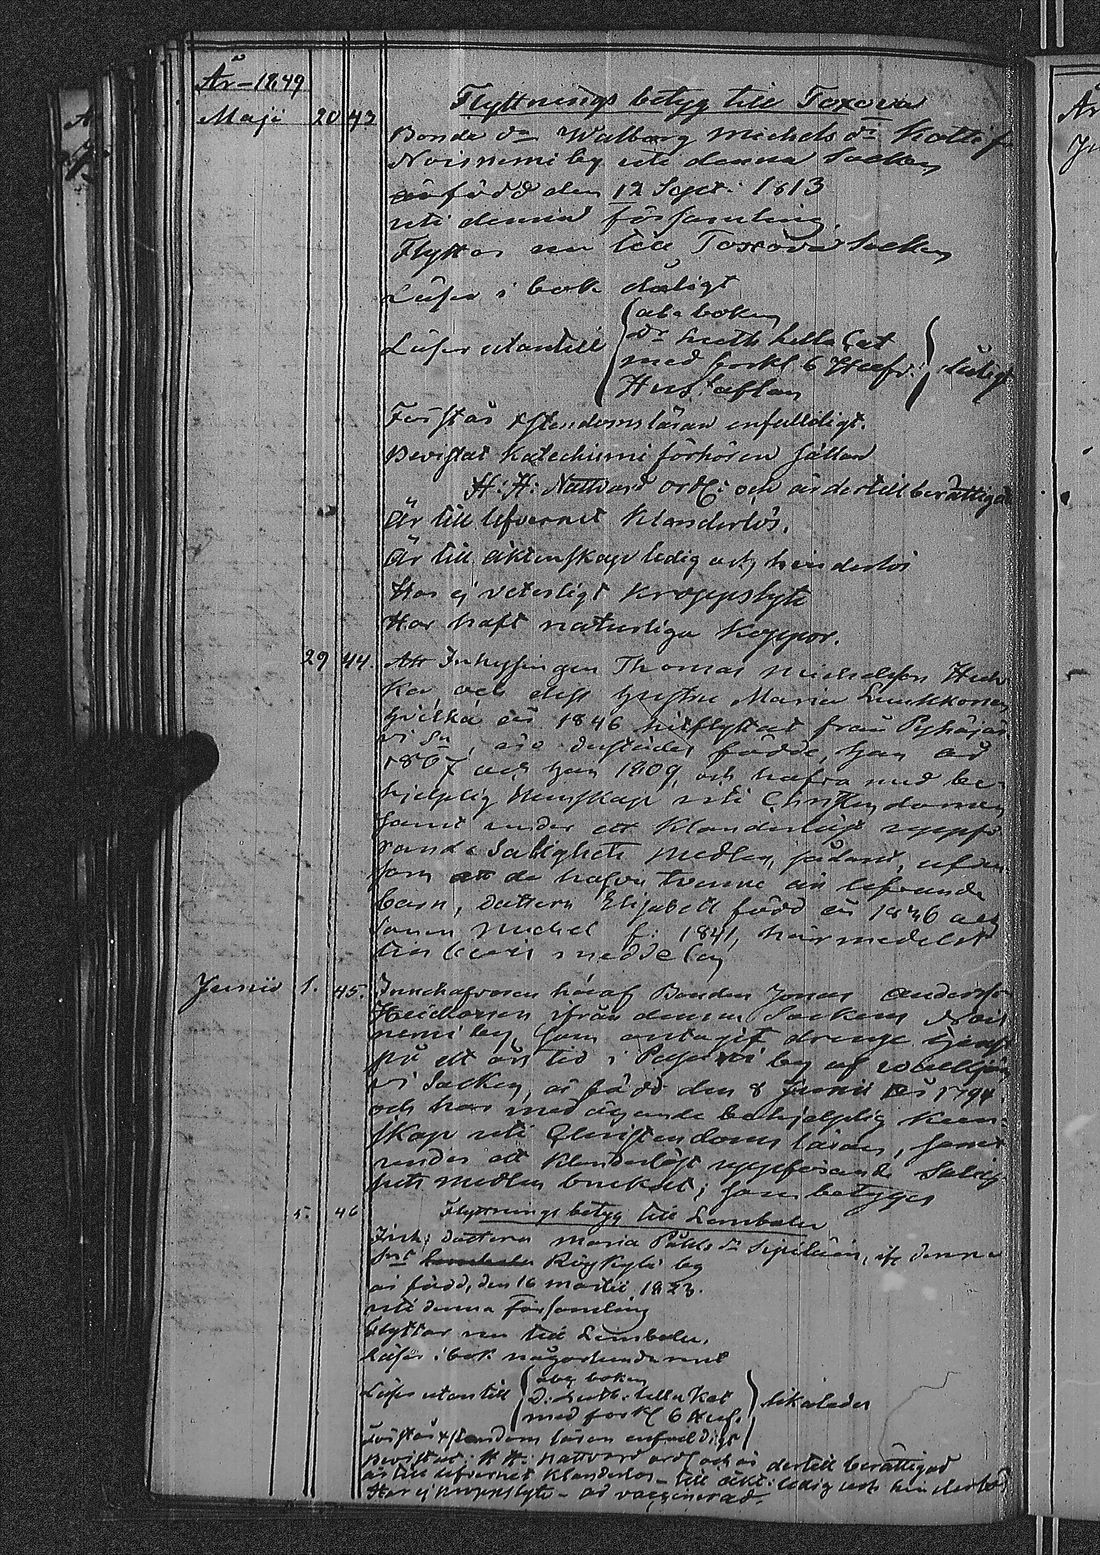 År - 1849
Maji 20 43 Flyttnings betyg till Toxova
Bonde dr Walborg Michels dr
by uti denna Socken
född den 12 Sept: 1813
uti denna församling
Flyttar nu till Toxova Socken
Läser i bok dåligt
Läser utantill { abc boken
Dr Luth lilla Cat
med förkl 6 Hufv: } dåligt
Hus taflan
Förstår χstendomsläran enfalldigt.
Bevistat Katechismi förhören sällan
H: H: Nattvard ordl: och är dertill berättigad
Är till lefvernet Klanderlös.
Är till äktenskap ledig och hinderlös
Har ej veterligt Kroppslyte
Har haft naturliga Koppor.
29 44. Att Inhysingen Thomas Michelsson
och dess hustru Maria
hvilka år 1846 hitflyttat från Pyhäjär
vi Sn, äro dersteds födde, han år
1807 och hon 1809, och hafva med be-
hjelplig kunskap uti Christendomen
samt under ett Klanderlöst uppfö-
rande Salighets medlen, jemte
som att de hafva tvenne än lefvande
barn, dottern Elisabeth född år 1836 och
sonen Michel f: 1841, härmedelst
till bevis meddelas
Junii 1. 45. Innehafvaren häraf Bonden Jonas Andersson
Heikkonen ifrån denna Sockens
by, som antagit drenge tjenst
på ett års tid i by af
vi Socken, är född den 8 Junii år 1794
och har medägande behjelplig Kun-
skap uti Christendoms läran, samt
under ett Klanderlöst uppförande Salig-
hets medlen brukat; som betygas
5. 46 Flyttnings betyg till Limbala
Inh: dottern Maria Påhls dr af denna
Sns by
är född den 16 Martii, 1823.
uti denna Församling
Flyttar nu till Limbala.
Läser i bok någorlunda
Läser utantill { abc boken
D: Luth: lilla Kat
med förkl 6 Huf. } likaledes
Förstår χstendoms läran enfalldigt
Bevistat: H H: Nattvard ordl och är dertill berättigad
är till lefvernet Klanderlös - till äkt: ledig och hinderlös
Har ej kroppslyte - är vaccinerad.